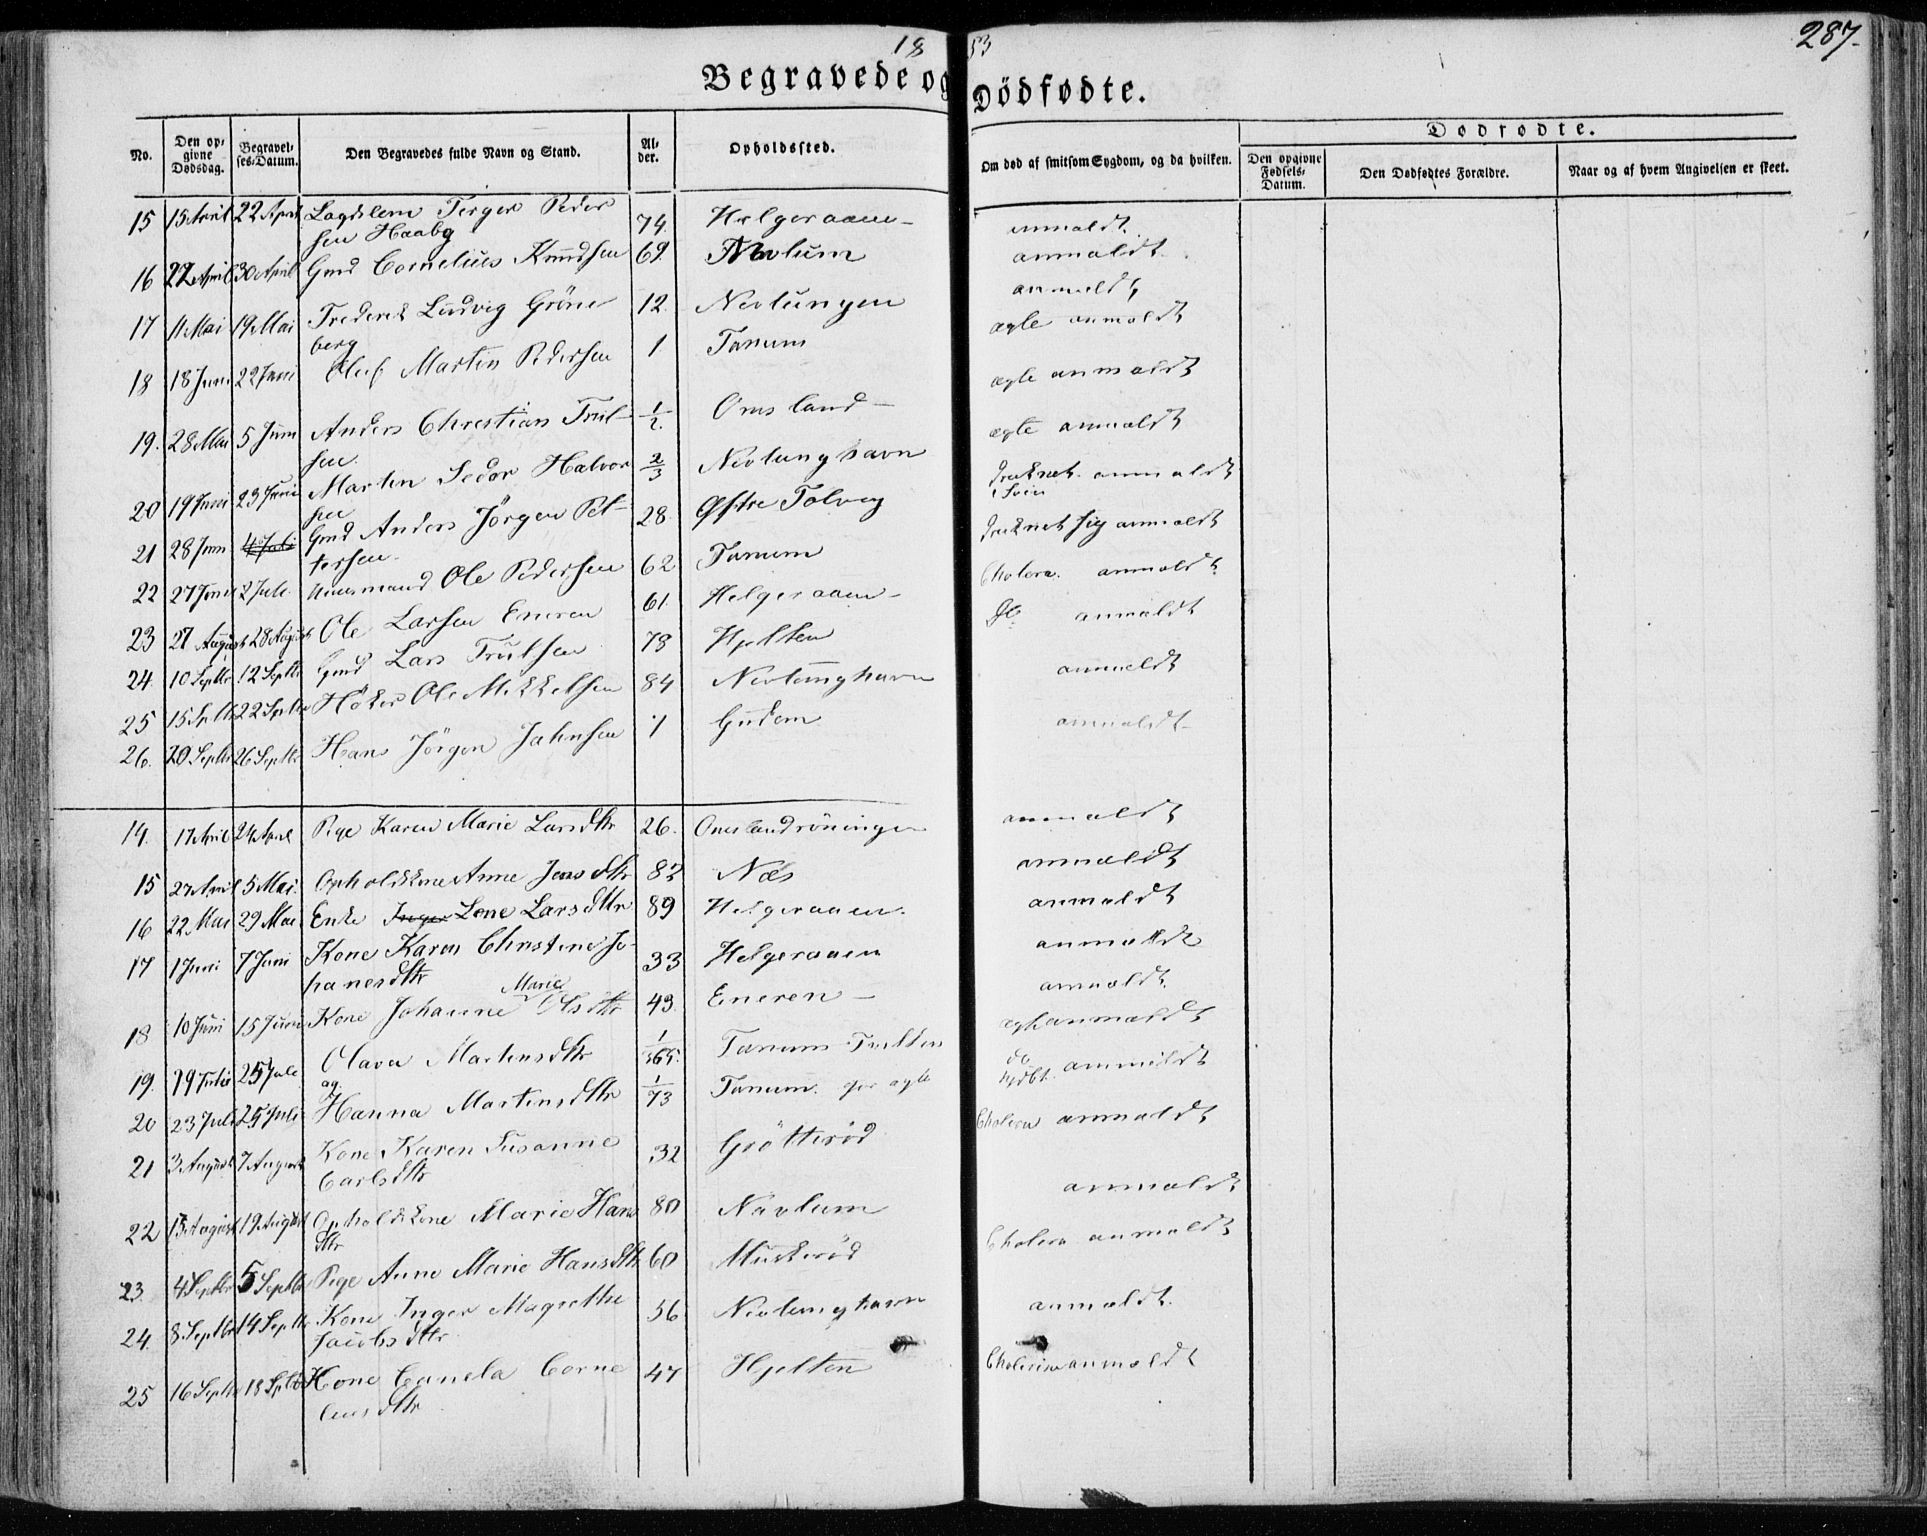 1853
287.
Begravede og Dödfødte.
No. Den opgivne Dødsdag. Begravelses-Datum. Den Begravedes fulde Navn og Stand. Alder. Opholdssted. Om død af smitsom Sygdom, og da hvilken. Dødfødte. Den opgivne Fødsels-Datum. Den Dødfødtes Forældre. Naar og af hvem Angivelsen er skeet.
15 15 April 22 April Terger Peder 74. Helgeraaen- anmældt.
sen Haaby
16 22 April 30 April Gmd Cornelius Knudsen 69. anmældt.
17 11 Mai 19 Mai Frederik Ludvig Gröne 12. Nevlungen anmeldt
berg
18 18 Juni 22 Juni Oluf Martin Pedersen 1. Tanum ægte anmeldt
19. 28 Mai 5 Juni Anders Christian Trul- 1/2. Omsland- ægte anmældt
sen.
20 19 Juni 23 Juni Martin Halvor 2/3 Nevlunghavn ægte anmældt
sen
21 28 Juni 4 Juli Gmd Anders Jörgen Pet- 28. Østre Tolvey druknet anmeldt
tersen.
22 27 Juni 2 Juli. Huusmand Ole Pedersen 62 Tanum druknet sig anmældt
23 27 August 28 August Ole Larsen Eneren 61. Helgeraaen- Cholera. anmældt
24. 10 Septbr 12 Septbr Gmd Lars Trulsen 78 Hjelten Do anmeldt
25 15 Septbr 22 Septbr Ole Mikkelsen 84 Nevlunghavn anmeldt
26. 20 Septbr 26 Septbr Hans Jörgen Jahnsen 1 Gudem anmældt-
14. 17 April 24 April Pige Karen Marie Larsdtr 26. Omslandröningen anmældt
15 27 April 5 Mai. Opholdskone Anne Jensdtr 82 Næs anmældt
16 22 Mai 29 Mai Enke Inger Lene Larsdttr 89 Helgeraaen. anmeldt
17 1 Juni 7 Juni Kone Karen Christine Jo- 33 Helgeraaen anmældt
hanesdtr
18 10 Juni 15 Juni Kone Johanne Marie Olsdtr 43. Eneren- anmældt.
19. 19 Julii 25 Juli Olava Martinsdtr 1/365. Tanum ægte anmældt
og
20 23 Juli 25 Juli Hanna Martinsdtr 1/73 Tanum. do hjdbt. anmeldt
21 3 August 7 August Kone Karen Susanne 32 Gröttiröd Cholera anmældt
Carlsdtr
22 13 August 19 August Opholdskone Marie Hans 80 Navlum anmældt
dtr
23. 4 Septbr 5 Septbr Pige Anne Marie Hansdtr 60 Muskeröd Cholera anmældt
24. 8 Septbr 14 Septbr Kone Inger Magrethe 56. Nevlunghavn anmældt.
Jacobsdtr
25 16 Septbr 18 Septbr Kone Corne 47 Hjelten Cholerine anmældt
liusdtr